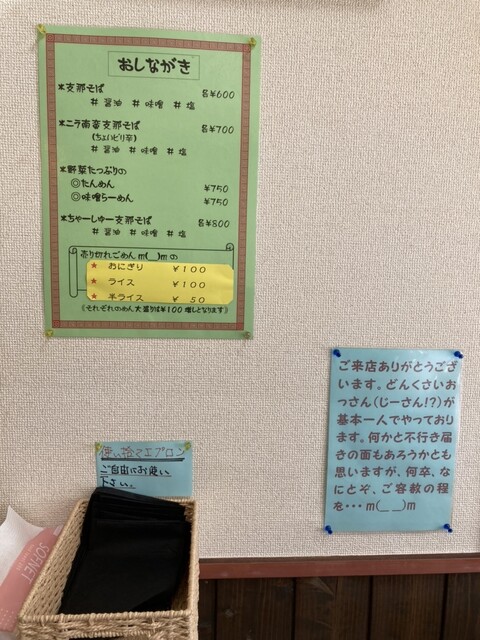 おしながき
*支那そば 各¥600
# 醤油 # 味噌 # 塩
*ニラ南蛮支那そば 各¥700
(ちょいピリ辛)
# 醤油 # 味噌 # 塩
*野菜たっぷりの
◎たんめん ¥750
◎味噌らーめん ¥750
*ちゃーしゅー支那そば 各¥800
# 醤油 # 味噌 # 塩
売り切れごめん m(__)m の
★ おにぎり ¥100
★ ライス ¥100
★ 半ライス ¥ 50
《それぞれのめん大盛りは¥100増しとなります》
ご来店ありがとうござ
います。どんくさいお
っさん(じーさん!?)が
基本一人でやっており
ます。何かと不行き届
きの面もあろうかとも
思いますが、何卒、な
にとぞ、ご容赦の程
を・・・m(_ _)m
使い捨てエプロン
ご自由にお使い
下さい。
SOFNET